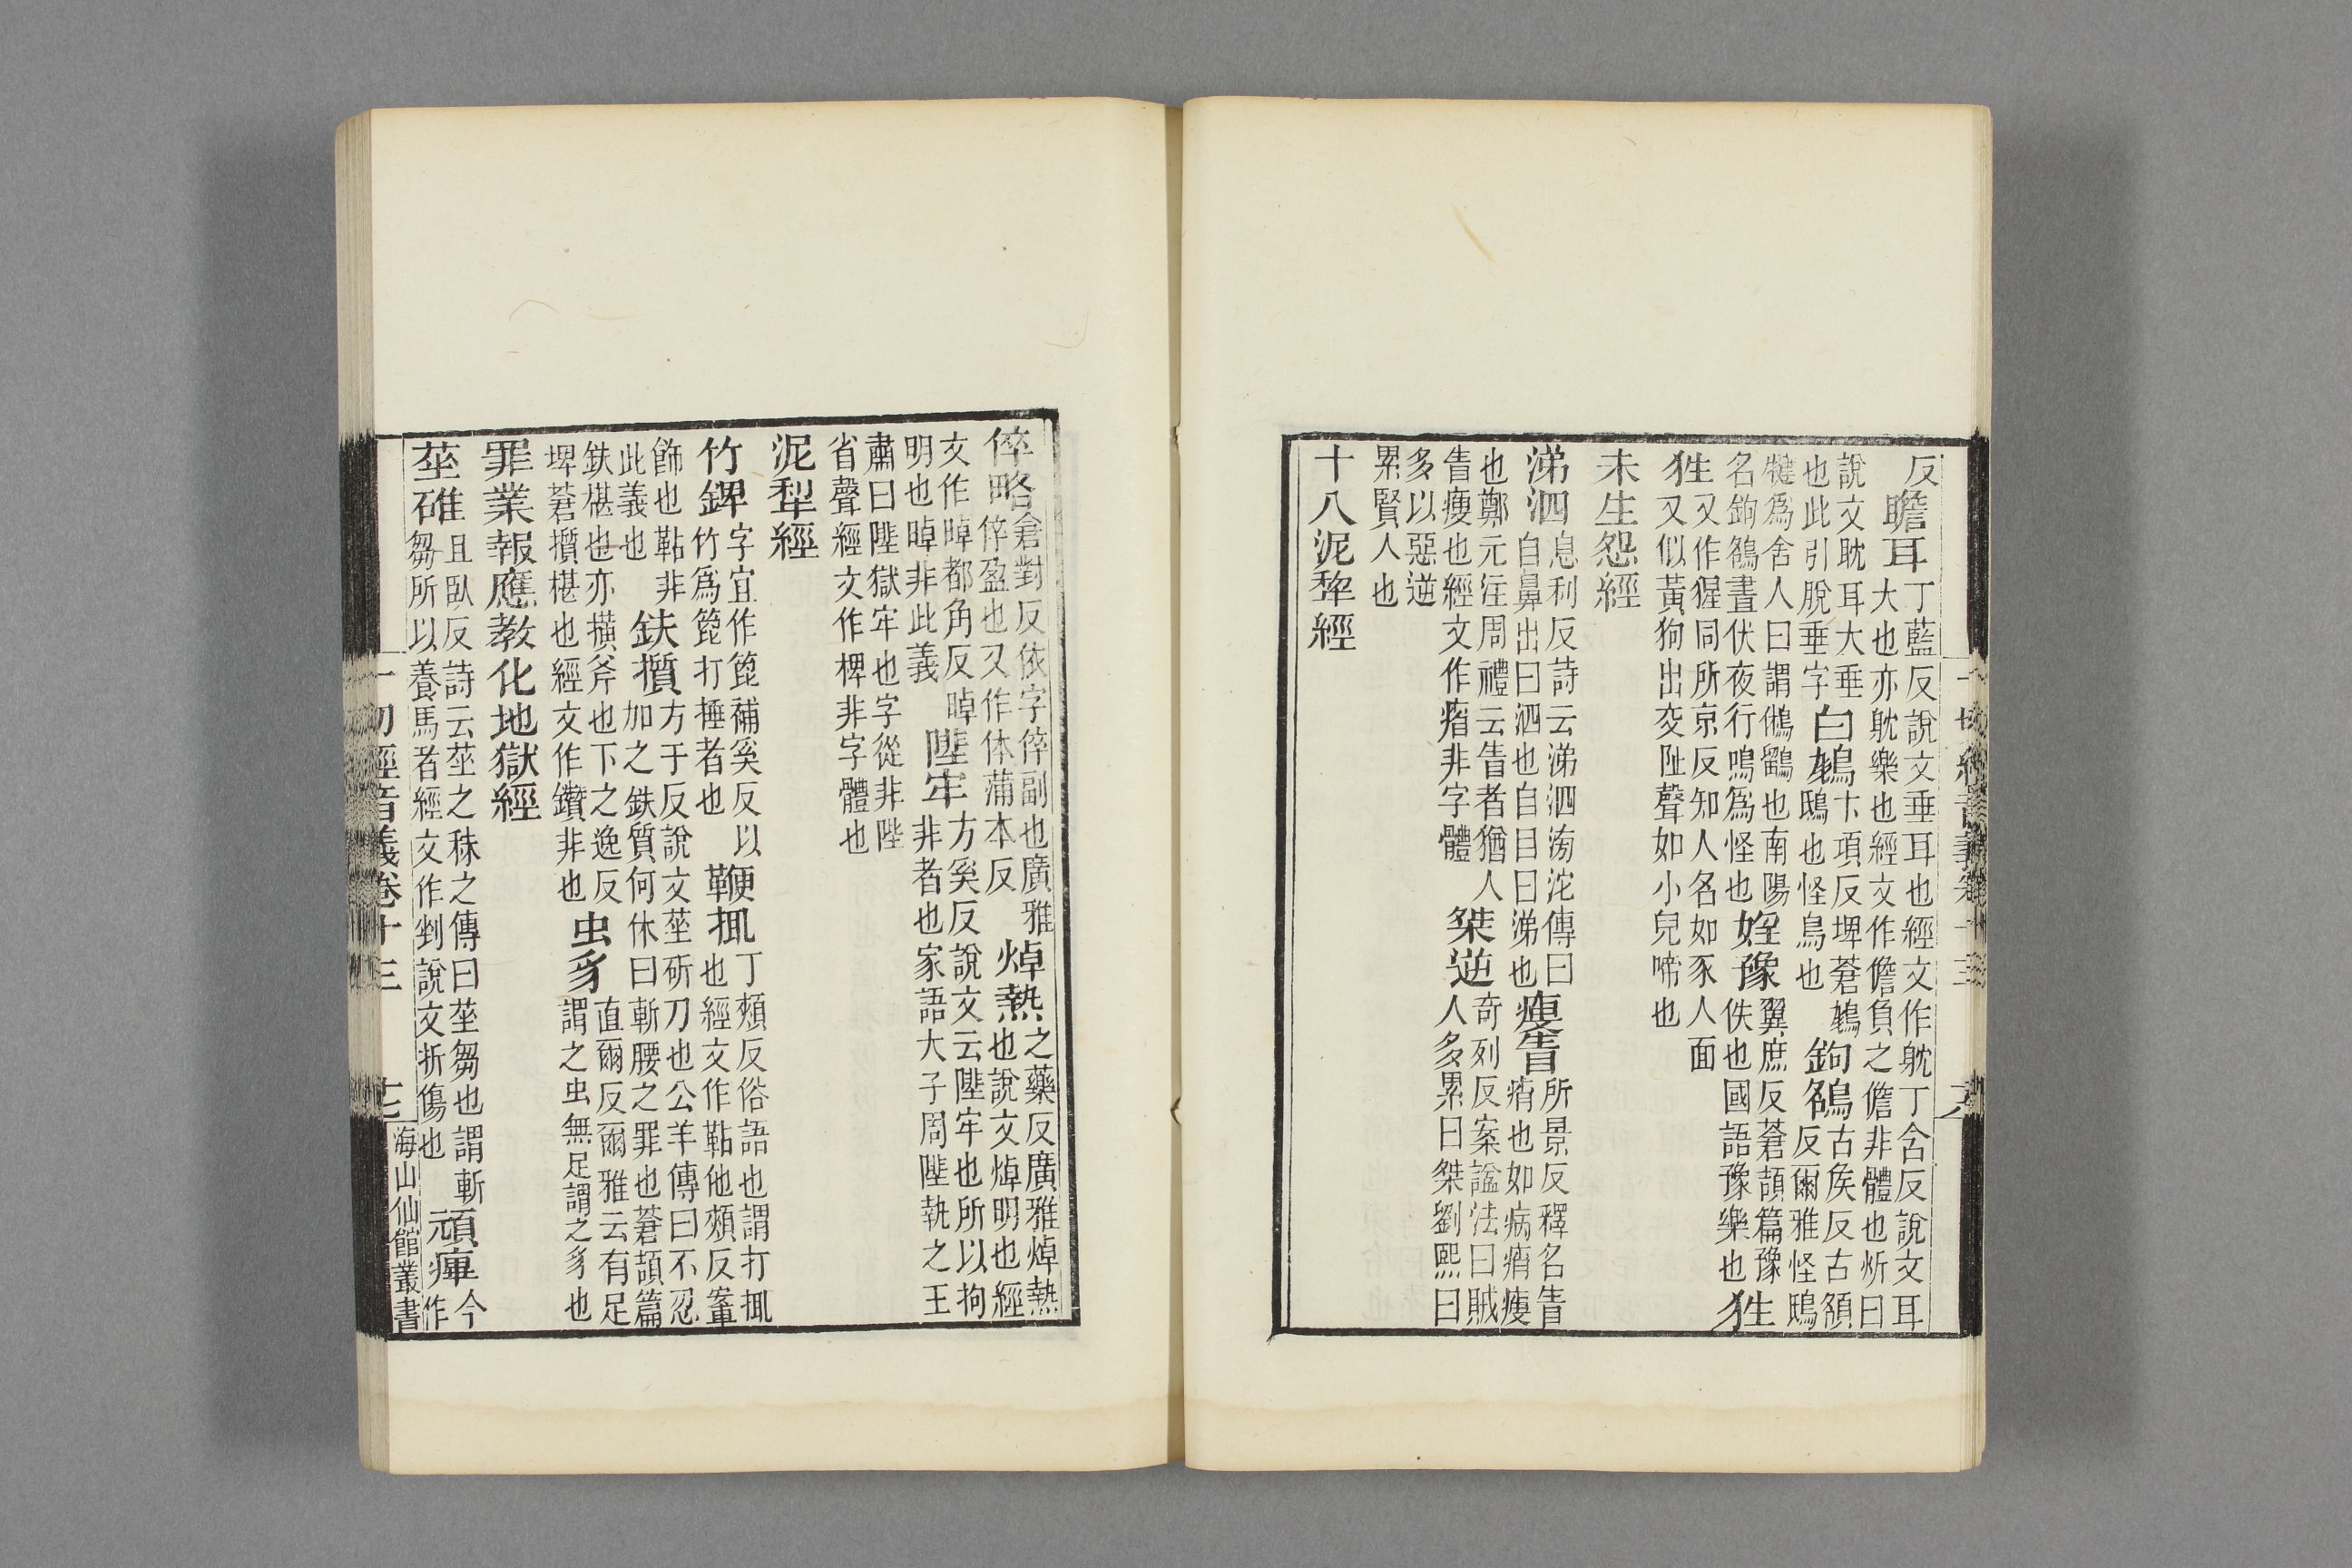 反
瞻耳
丁藍反說文垂耳也經文作躭丁含反說文耳
大也亦躭樂也經文作儋負之儋非體也炘曰
說文耽耳大垂
也此引脫垂字
白鵵
卞項反埤蒼鵵
鴟也怪鳥也
鉤鵅
古矦反古額
反爾雅怪鴟
犍爲舍人曰謂鵂鶹也南陽
名鉤鵅晝伏夜行鳴爲怪也
婬豫
翼庶反蒼頡篇豫
佚也國語豫樂也
狌
狌
又作猩同所京反知人名如豕人面
又似黃狗出交阯聲如小兒啼也
未生怨經
涕泗
息利反詩云涕泗滂沱傳曰
自鼻出曰泗也自目曰涕也
瘦眚
所景反釋名眚
㾪也如病㾪瘦
也鄭元注周禮云眚者猶人
眚瘦也經文作㾪非字體
桀逆
奇列反案諡法曰賊
人多累曰桀劉熙曰
多以惡逆
累賢人也
十八泥犂經
一切經音義卷十三
十六
倅略
倉對反依字倅副也廣雅
倅盈也又作体蒲本反
焯熱
之藥反廣雅焯熱
也說文焯明也經
文作晫都角反晫
明也晫非此義
陛牢
方奚反說文云陛牢也所以拘
非者也家語大子周陛執之王
肅曰陛獄牢也字從非陛
省聲經文作椑非字體也
泥犁經
竹錍
字宜作箆補奚反以
竹爲箆打捶者也
鞭挕
丁頰反俗語也謂打挕
也經文作鞊他頰反鞌
飾也鞊非
此義也
鈇櫍
方于反說文莝斫刀也公羊傳曰不忍
加之鈇質何休曰斬腰之罪也蒼頡篇
鈇椹也亦横斧也下之逸反
埤蒼櫍椹也經文作鑕非也
虫豸
直爾反爾雅云有足
謂之虫無足謂之豸也
罪業報應教化地獄經
莝碓
且臥反詩云莝之秣之傳曰莝芻也謂斬
芻所以養馬者經文作剉說文折傷也
頑痺
今
作
一切經音義卷十三
十七
海山仙館叢書